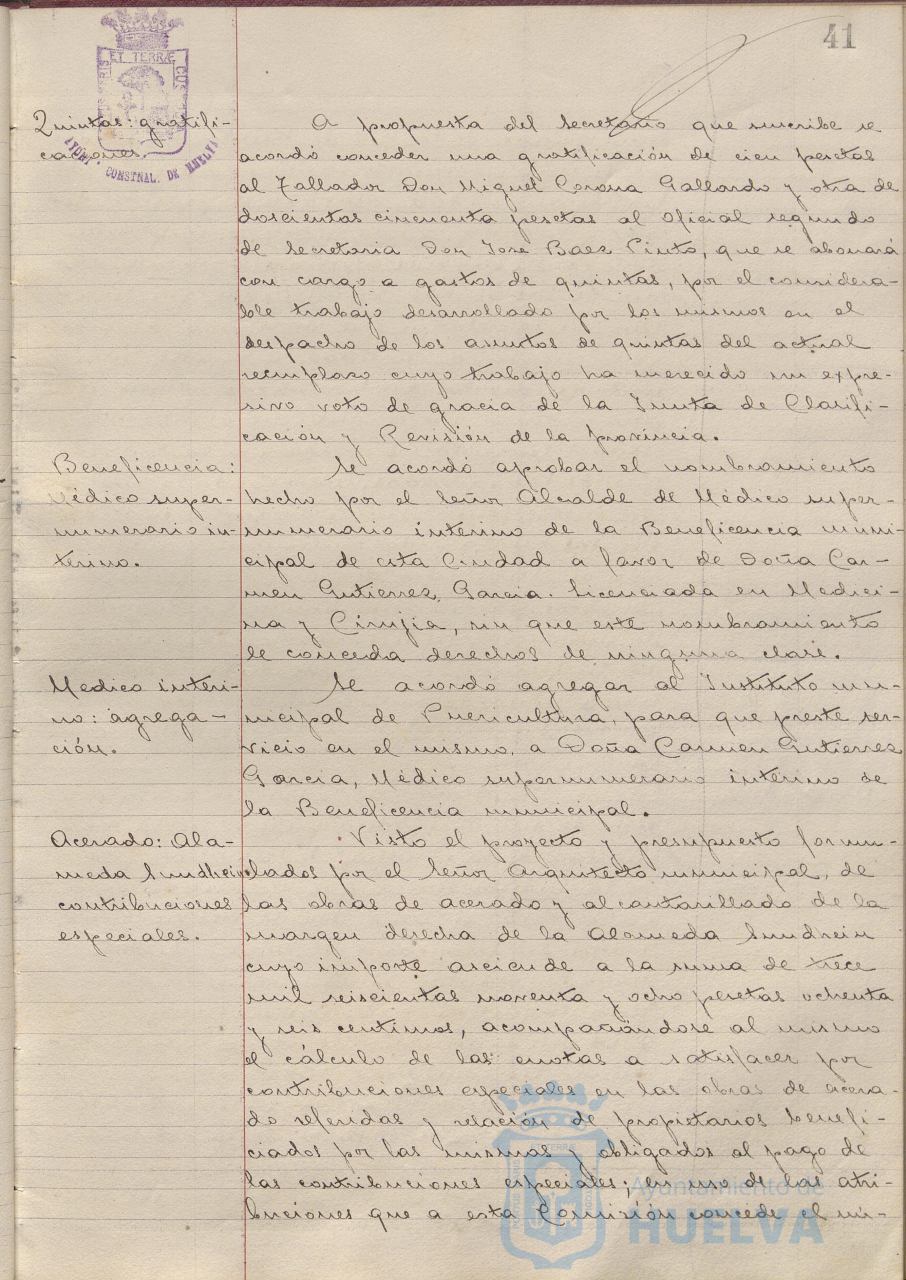 41
ET TERRÆ
AYUNT. CONSTNAL. DE HUELVA
Quintas: gratifi-
caciones.
A propuesta del Secretario que suscribe se
acordó conceder una gratificación de cien pesetas
al Tallador Don Miguel Corona Gallardo y otra de
doscientas cincuenta pesetas al Oficial segundo
de Secretaria Don José Baez Pinto, que se abonará
con cargo a gastos de quintas, por el considera-
ble trabajo desarrollado por los mismos en el
despacho de los asuntos de quintas del actual
reemplazo cuyo trabajo ha merecido un expre-
sivo voto de gracia de la Junta de Clasifi-
cación y Revisión de la provincia.
Beneficencia:
Médico super-
numerario in-
terino.
Se acordó aprobar el nombramiento
hecho por el Señor Alcalde de Médico super-
numerario interino de la Beneficencia muni-
cipal de esta Ciudad a favor de Doña Car-
men Gutierrez Garcia. Licenciada en Medici-
na y Cirujia, sin que este nombramiento
le conceda derechos de ninguna clase.
Medico interi-
no: agrega-
ción.
Se acordó agregar al Instituto mu-
nicipal de Puericultura, para que preste ser-
vicio en el mismo, a Doña Carmen Gutierrez
Garcia, Médico supernumerario interino de
la Beneficencia municipal.
Acerado: Ala-
meda Sundheim
contribuciones
especiales.
Visto el proyecto y presupuesto formu-
lados por el Señor Arquitecto municipal, de
las obras de acerado y alcantarillado de la
margen derecha de la Alameda Sundheim
cuyo importe asciende a la suma de trece
mil seiscientas noventa y ocho pesetas ochenta
y seis centimos, acompañándose al mismo
el cálculo de las cuotas a satisfacer por
contribuciones especiales en las obras de acera-
do referidas y relación de propietarios benefi-
ciados por las mismas y obligados al pago de
las contribuciones especiales; en uso de las atri-
buciones que a esta Comisión concede el nú-
Ayuntamiento de
HUELVA